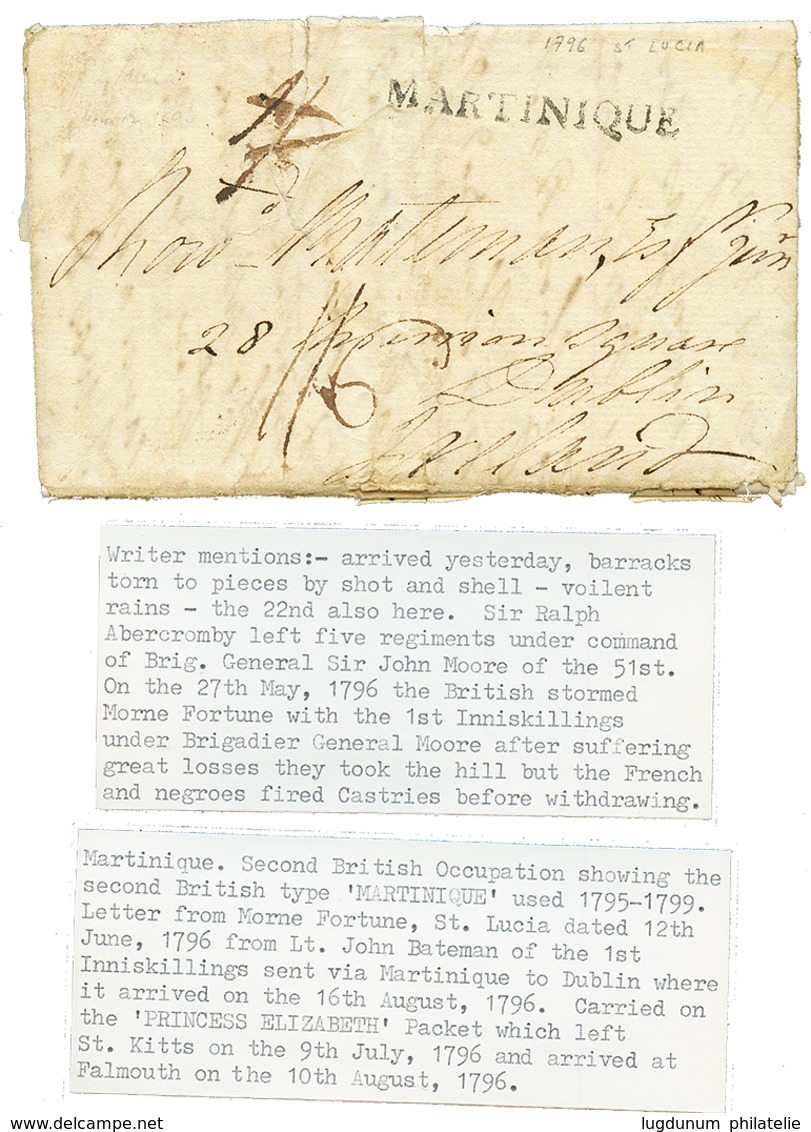 1796 St LUCIA
MARTINIQUE
Row.d Bateman, Esqr. Junr
28 Merrion Square
Dublin
Ireland
1/6
Writer mentions:- arrived yesterday, barracks
torn to pieces by shot and shell - voilent
rains - the 22nd also here. Sir Ralph
Abercromby left five regiments under command
of Brig. General Sir John Moore of the 51st.
On the 27th May, 1796 the British stormed
Morne Fortune with the 1st Inniskillings
under Brigadier General Moore after suffering
great losses they took the hill but the French
and negroes fired Castries before withdrawing.
Martinique. Second British Occupation showing the
second British type 'MARTINIQUE' used 1795-1799.
Letter from Morne Fortune, St. Lucia dated 12th
June, 1796 from Lt. John Bateman of the 1st
Inniskillings sent via Martinique to Dublin where
it arrived on the 16th August, 1796. Carried on
the 'PRINCESS ELIZABETH' Packet which left
St. Kitts on the 9th July, 1796 and arrived at
Falmouth on the 10th August, 1796.
lugdunum philatelie